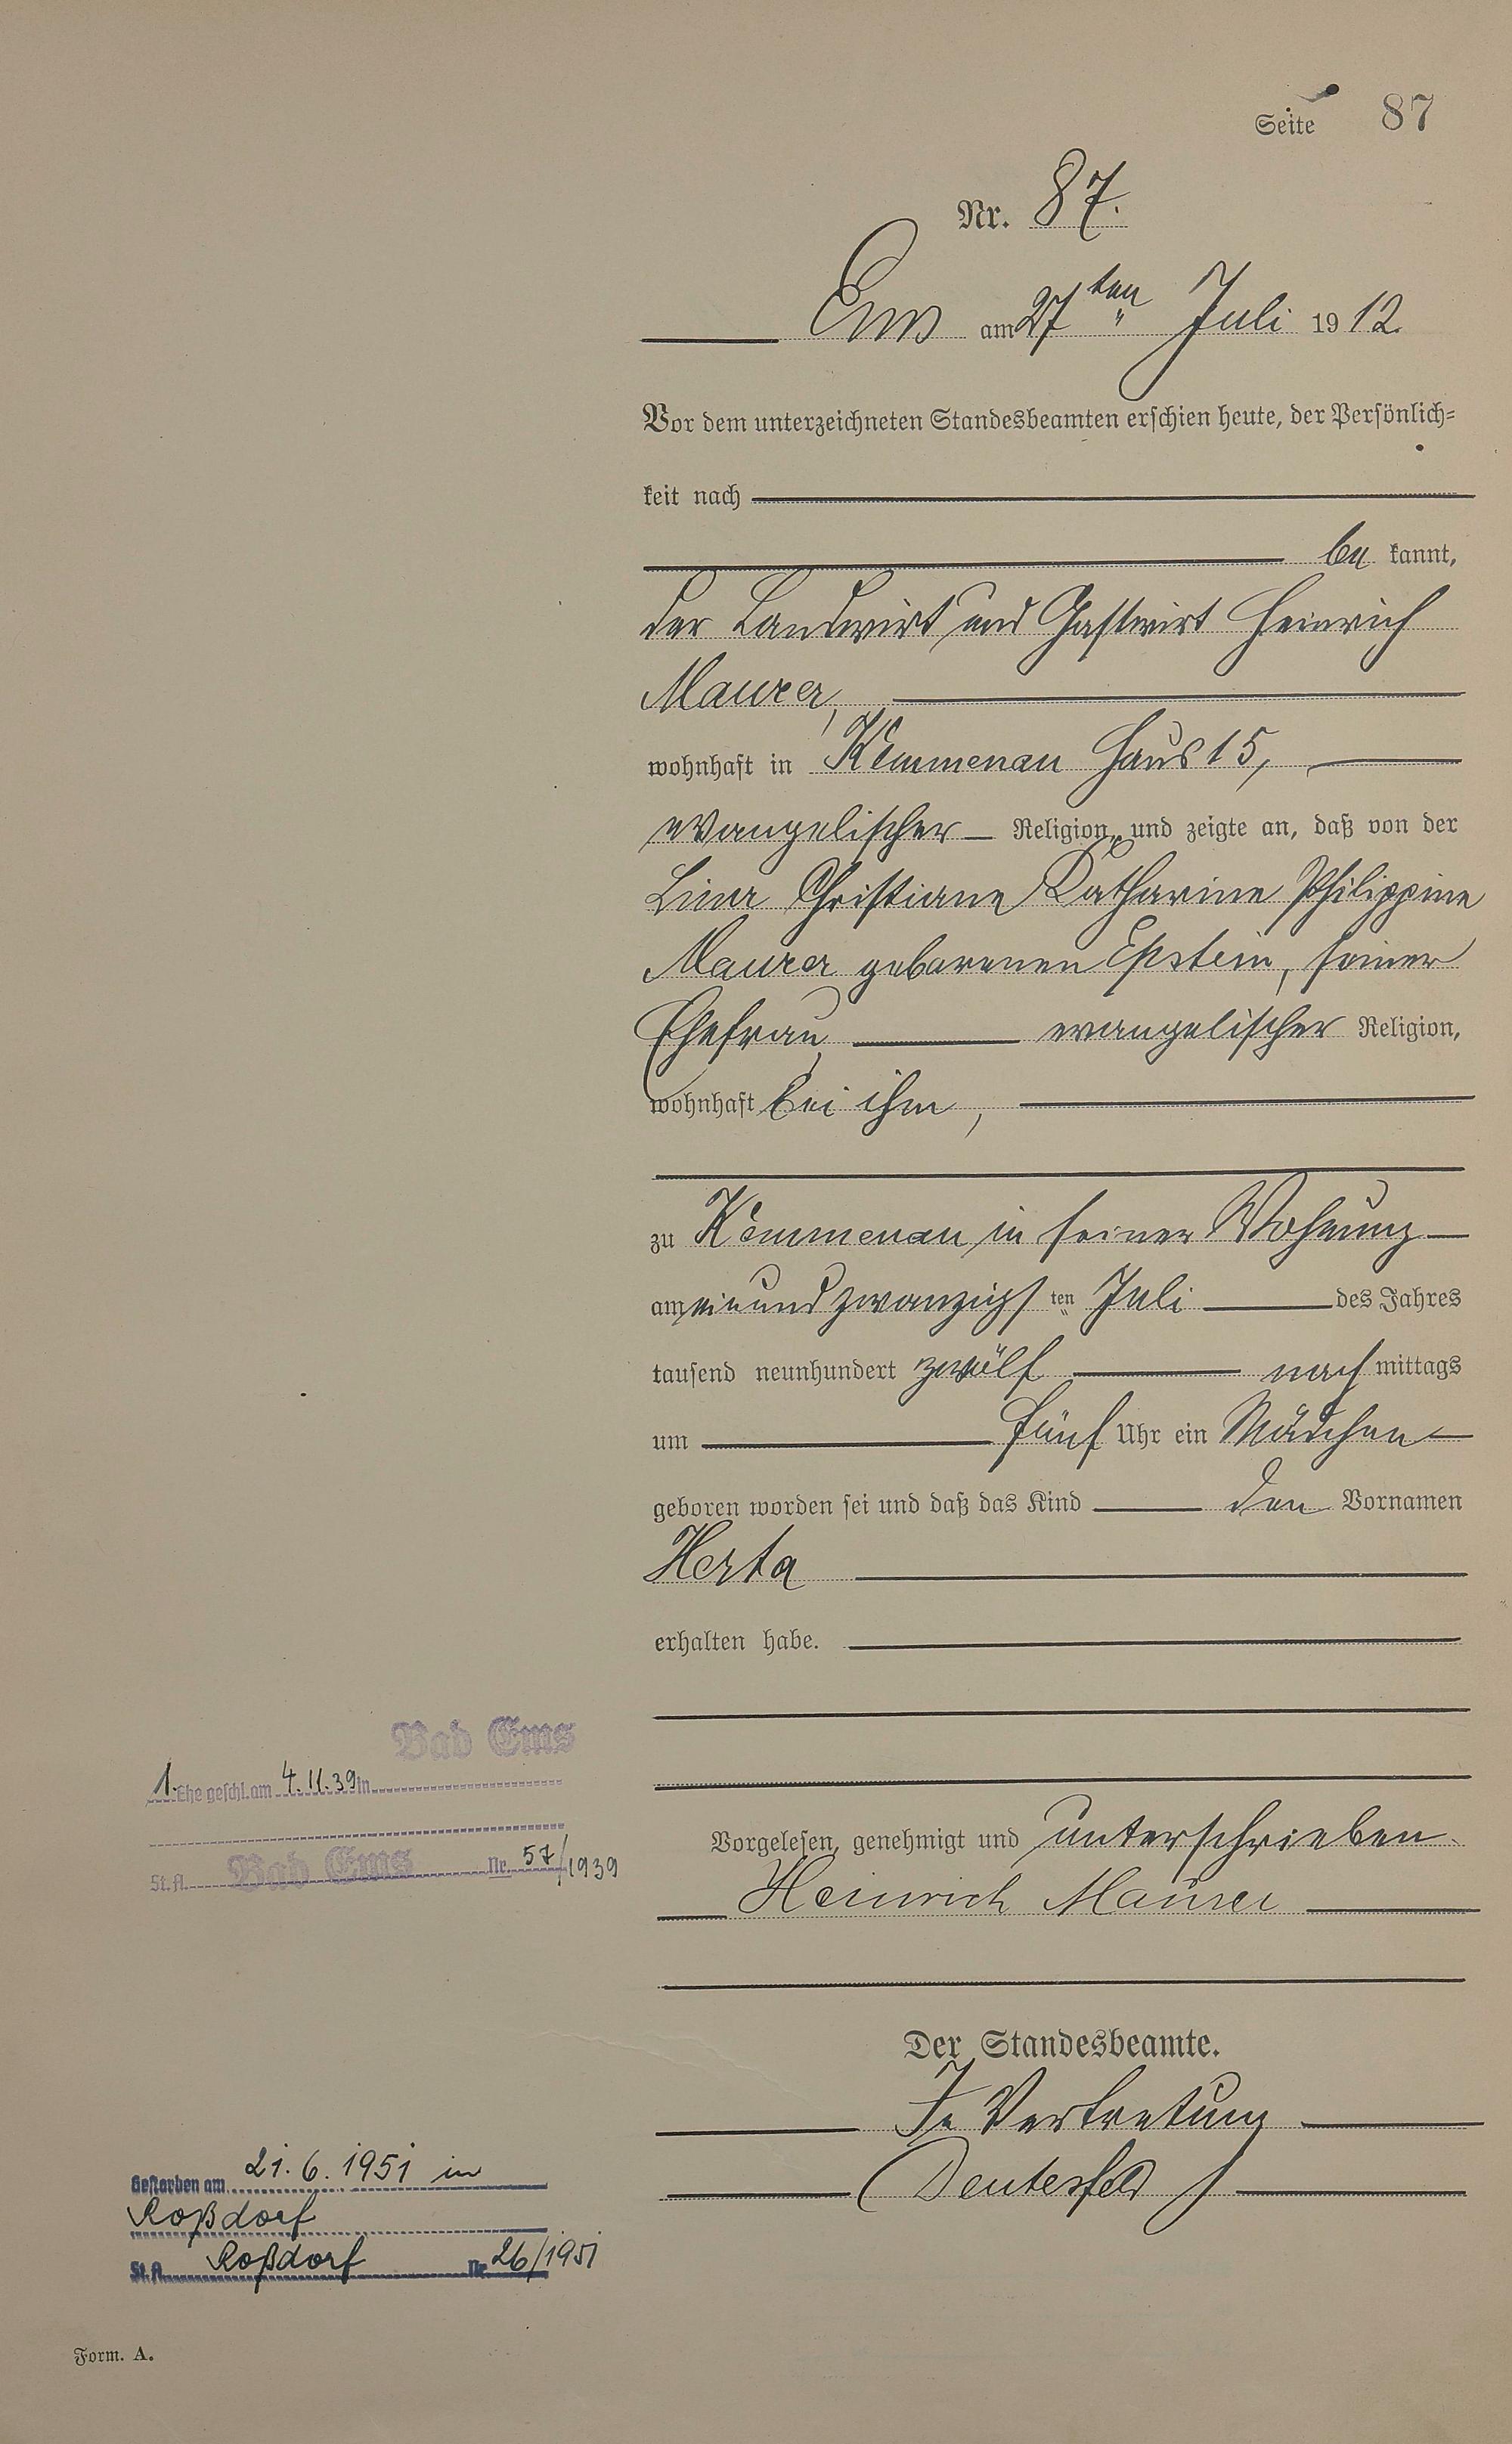 Seite 87
Nr. 87.
Ems am 27ten Juli 1912.
Vor dem unterzeichneten Standesbeamten erschien heute, der Persönlich=
keit nach
be kannt,
der Landwirt und Gastwirt Heinrich
Maurer,
wohnhaft in Kemmenau Haus 15,
evangelischer Religion, und zeigte an, daß von der
Lina Christiane Katharine Philippine
Maurer geborenen Epstein, seiner
Ehefrau, evangelischer Religion,
wohnhaft bei ihm,
zu Kemmenau in seiner Wohnung
am einundzwanzigsten Juli des Jahres
tausend neunhundert zwölf nachmittags
um fünf Uhr ein Mädchen
geboren worden sei und daß das Kind den Vornamen
Herta
erhalten habe.
Vorgelesen, genehmigt und unterschrieben.
Heinrich Maurer
Der Standesbeamte.
In Vertretung
Bad Ems
1. Ehe geschl. am 4.11.39 in
St.A. Bad Ems Nr. 57/1939
Gestorben am 21.6.1951 in
Roßdorf
St.A. Roßdorf Nr. 26/1951
Form. A.